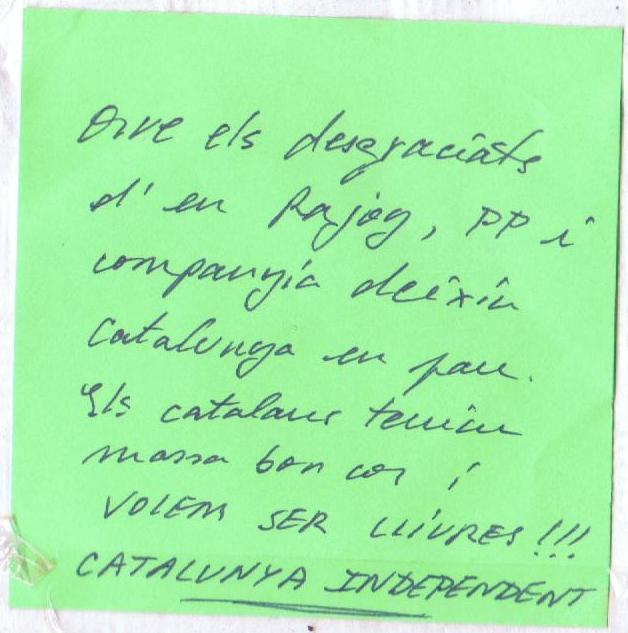 Que els desgraciats
d'en Rajoy, PP i
companyia deixin
Catalunya en pau.
Els catalans tenim
massa bon cor i
VOLEM SER LLIURES!!!
CATALUNYA INDEPENDENT